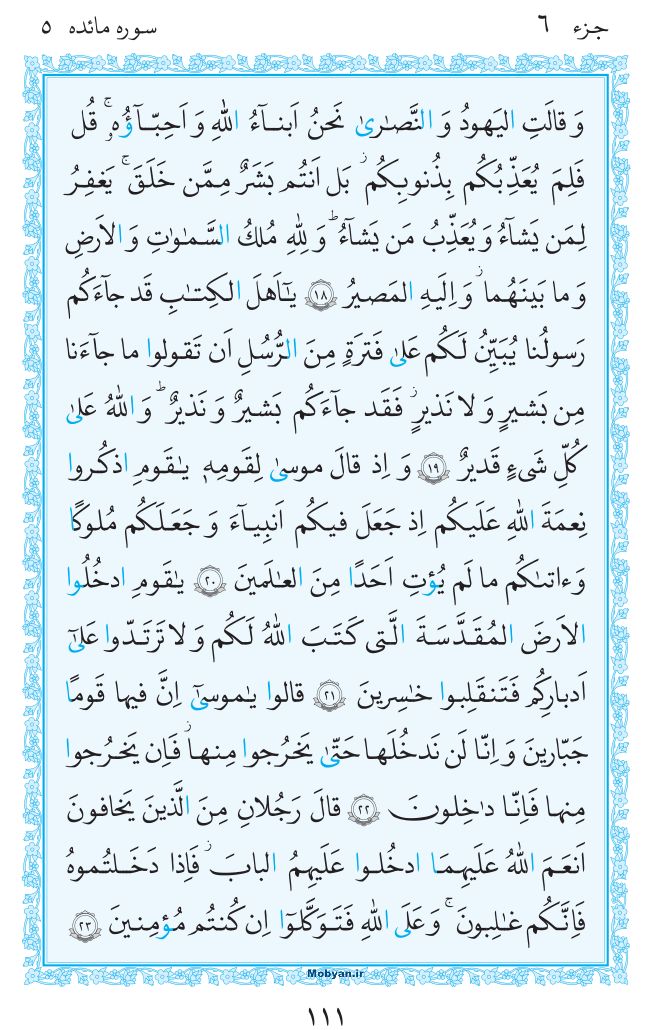 جزء ۶
سوره مائده ۵
وَ قالَتِ اليَهودُ وَ النَّصٰرىٰ نَحنُ اَبنـآءُ اللهِ وَ اَحِبّـآؤُهٗ ۚ قُل
فَلِمَ يُعَذِّبُكُم بِذُنوبِكُم ۖ بَل اَنتُم بَشَرٌ مِمَّن خَلَقَ ۚ يَغفِرُ
لِمَن يَشآءُ وَ يُعَذِّبُ مَن يَشآءُ ۚ وَ لِلّٰهِ مُلكُ السَّمٰوٰتِ وَ الاَرضِ
وَ ما بَينَهُما ۖ وَ اِلَيهِ المَصيرُ ﴿۱۸﴾ يٰـاَهلَ الكِتٰبِ قَد جآءَكُم
رَسولُنا يُبَيِّنُ لَكُم عَلىٰ فَترَةٍ مِنَ الرُّسُلِ اَن تَقولوا ما جآءَنا
مِن بَشيرٍ وَ لا نَذيرٍ ۖ فَقَد جآءَكُم بَشيرٌ وَ نَذيرٌ ۗ وَ اللهُ عَلىٰ
كُلِّ شَىءٍ قَديرٌ ﴿۱۹﴾ وَ اِذ قالَ موسىٰ لِقَومِهٖ يٰقَومِ اذكُروا
نِعمَةَ اللهِ عَلَيكُم اِذ جَعَلَ فيكُم اَنبِيـآءَ وَ جَعَلَكُم مُلوكًا
وَ ءاتىٰكُم ما لَم يُؤتِ اَحَدًا مِنَ العٰلَمينَ ﴿۲۰﴾ يٰقَومِ ادخُلُوا
الاَرضَ المُقَدَّسَةَ الَّتى كَتَبَ اللهُ لَكُم وَ لا تَرتَدّوا عَلىٰٓ
اَدبارِكُم فَتَنقَلِبوا خٰسِرينَ ﴿۲۱﴾ قالوا يٰموسىٰٓ اِنَّ فيها قَومًا
جَبّارينَ وَ اِنّا لَن نَدخُلَها حَتّىٰ يَخرُجوا مِنها ۖ فَاِن يَخرُجوا
مِنها فَاِنّا دٰخِلونَ ﴿۲۲﴾ قالَ رَجُلانِ مِنَ الَّذينَ يَخافونَ
اَنعَمَ اللهُ عَلَيهِمَا ادخُلـوا عَلَيهِمُ البابَ ۖ فَاِذا دَخَلتُموهُ
فَاِنَّكُم غٰلِبونَ ۚ وَ عَلَى اللهِ فَتَوَكَّلوٓا اِن كُنتُم مُؤمِنينَ ﴿۲۳﴾
Mobyan.ir
۱۱۱